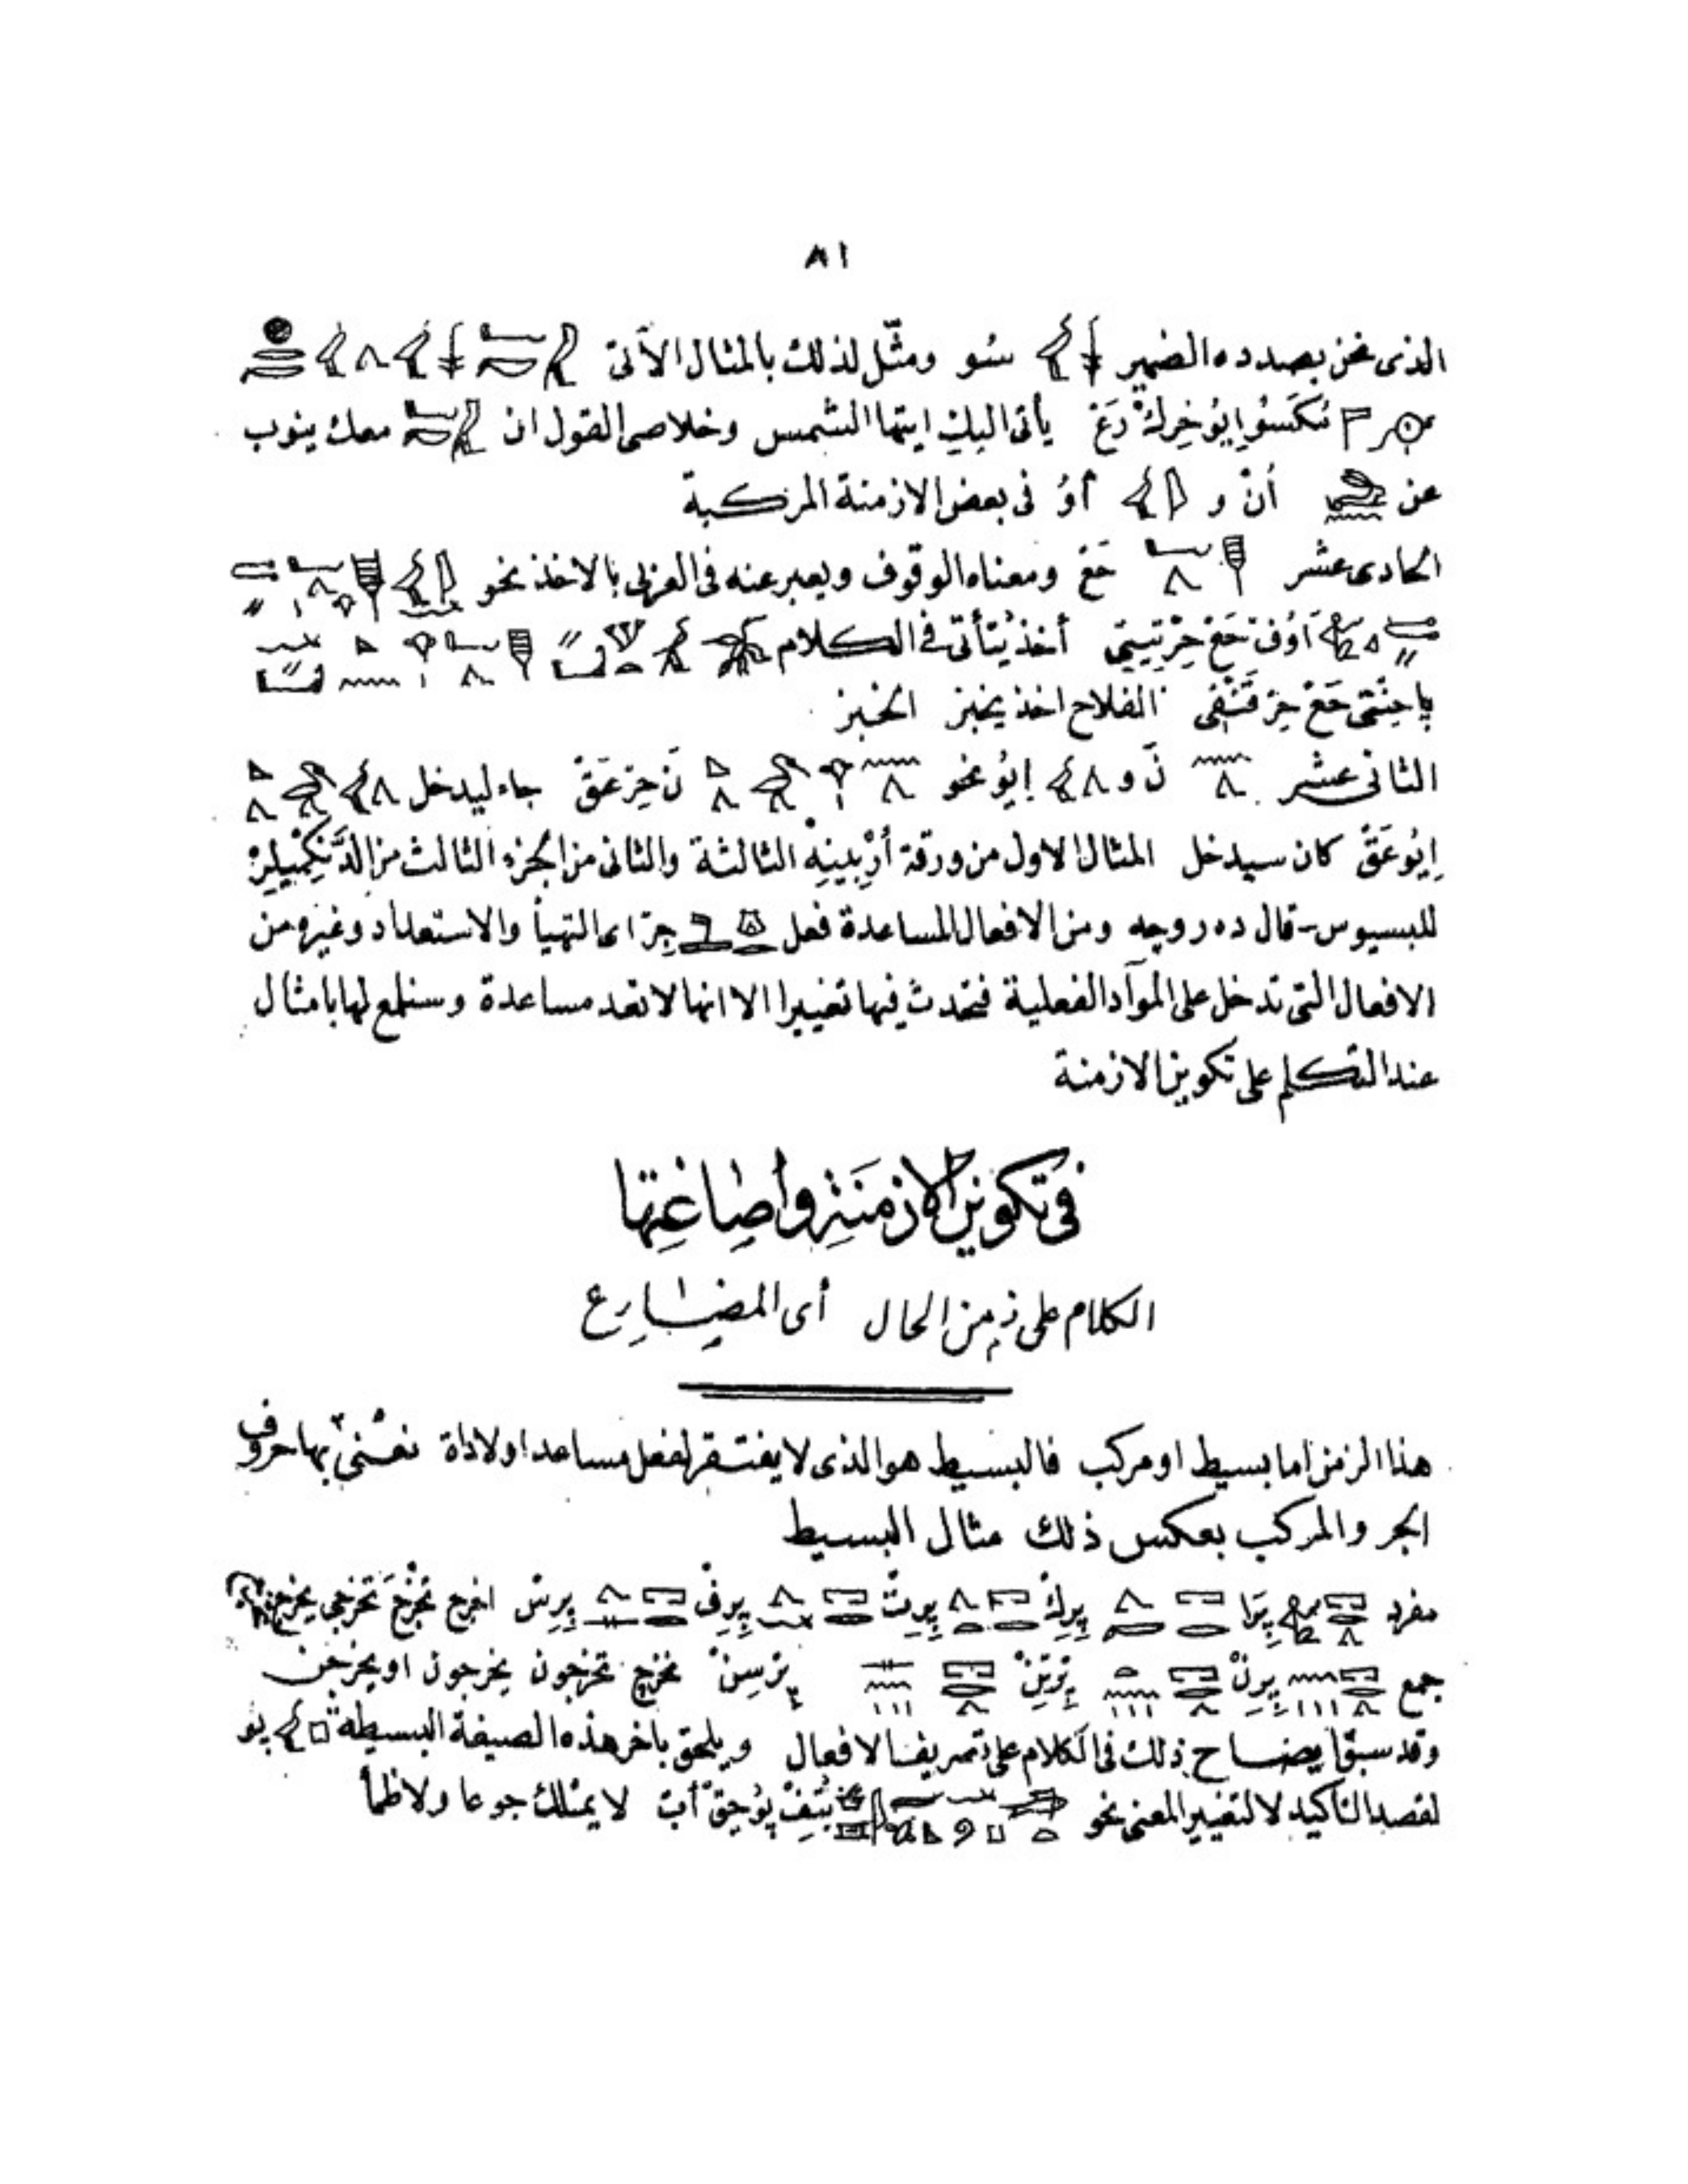 ٨١
الذى نحن بصدده الضمير سُو ومثّل لذلك بالمثال الآتى
مُكَسُو اِيُو خِرِكْ رَعْ يأتى اليكِ ايتها الشمس وخلاصة القول ان معك ينوب
عن أُنْ و أوُ فى بعض الازمنة المركبة
الحادى عشر حَعْ ومعناه الوقوف ويعبر عنه فى العربى بالاخذ نحو
آوُف حَعْ حِرْ تِيتِى أخذ يُتأتى فى الكلام
حَعْ حِرْ الفلاح اخذ يخبز الخبز
الثانى عشر نَ و اِيُو نحو نَ حِرْ عَقْ جاء ليدخل
اِيُو عَقْ كان سيدخل المثال الاول من ورقة أُرْبِينِهْ الثالثة والثانى من الجزء الثالث من الدَّنْكِمِيلِرْ
للبسيوس - قال ده روجه ومن الافعال المساعدة فعل جِرْ اى التهيأ والاستعداد وغيره من
الافعال التى تدخل على الموآد الفعلية فتحدث فيها تغييرا الا انها لا تعد مساعدة وسنلمع لها بامثال
عند التكلم على تكوين الازمنة
فى تكوين الازمنة وأصاغتها
الكلام على زمن الحال أى المضارع
هذا الزمن اما بسيط او مركب فالبسيط هو الذى لا يفتقر لفعل مساعد او لاداة نعنى بها حروف
الجر والمركب بعكس ذلك مثال البسيط
مفرد پِرَا پِرِكْ پِرِتْ پِرِفْ پِرِسْ اخرج تخرُجَ تخرجى يخرج
جمع پِرِنْ پِرْتِنْ پِرْسِنْ نخرج تخرجون يخرجون او يخرجن
وقد سبق ايضاح ذلك فى الكلام على تصريف الافعال ويلحق باخر هذه الصيغة البسيطه پو
لقصد التأكيد لا لتغيير المعنى نحو پُو حِقْ أبْ لا يمتلك جوعا ولا ظمأ